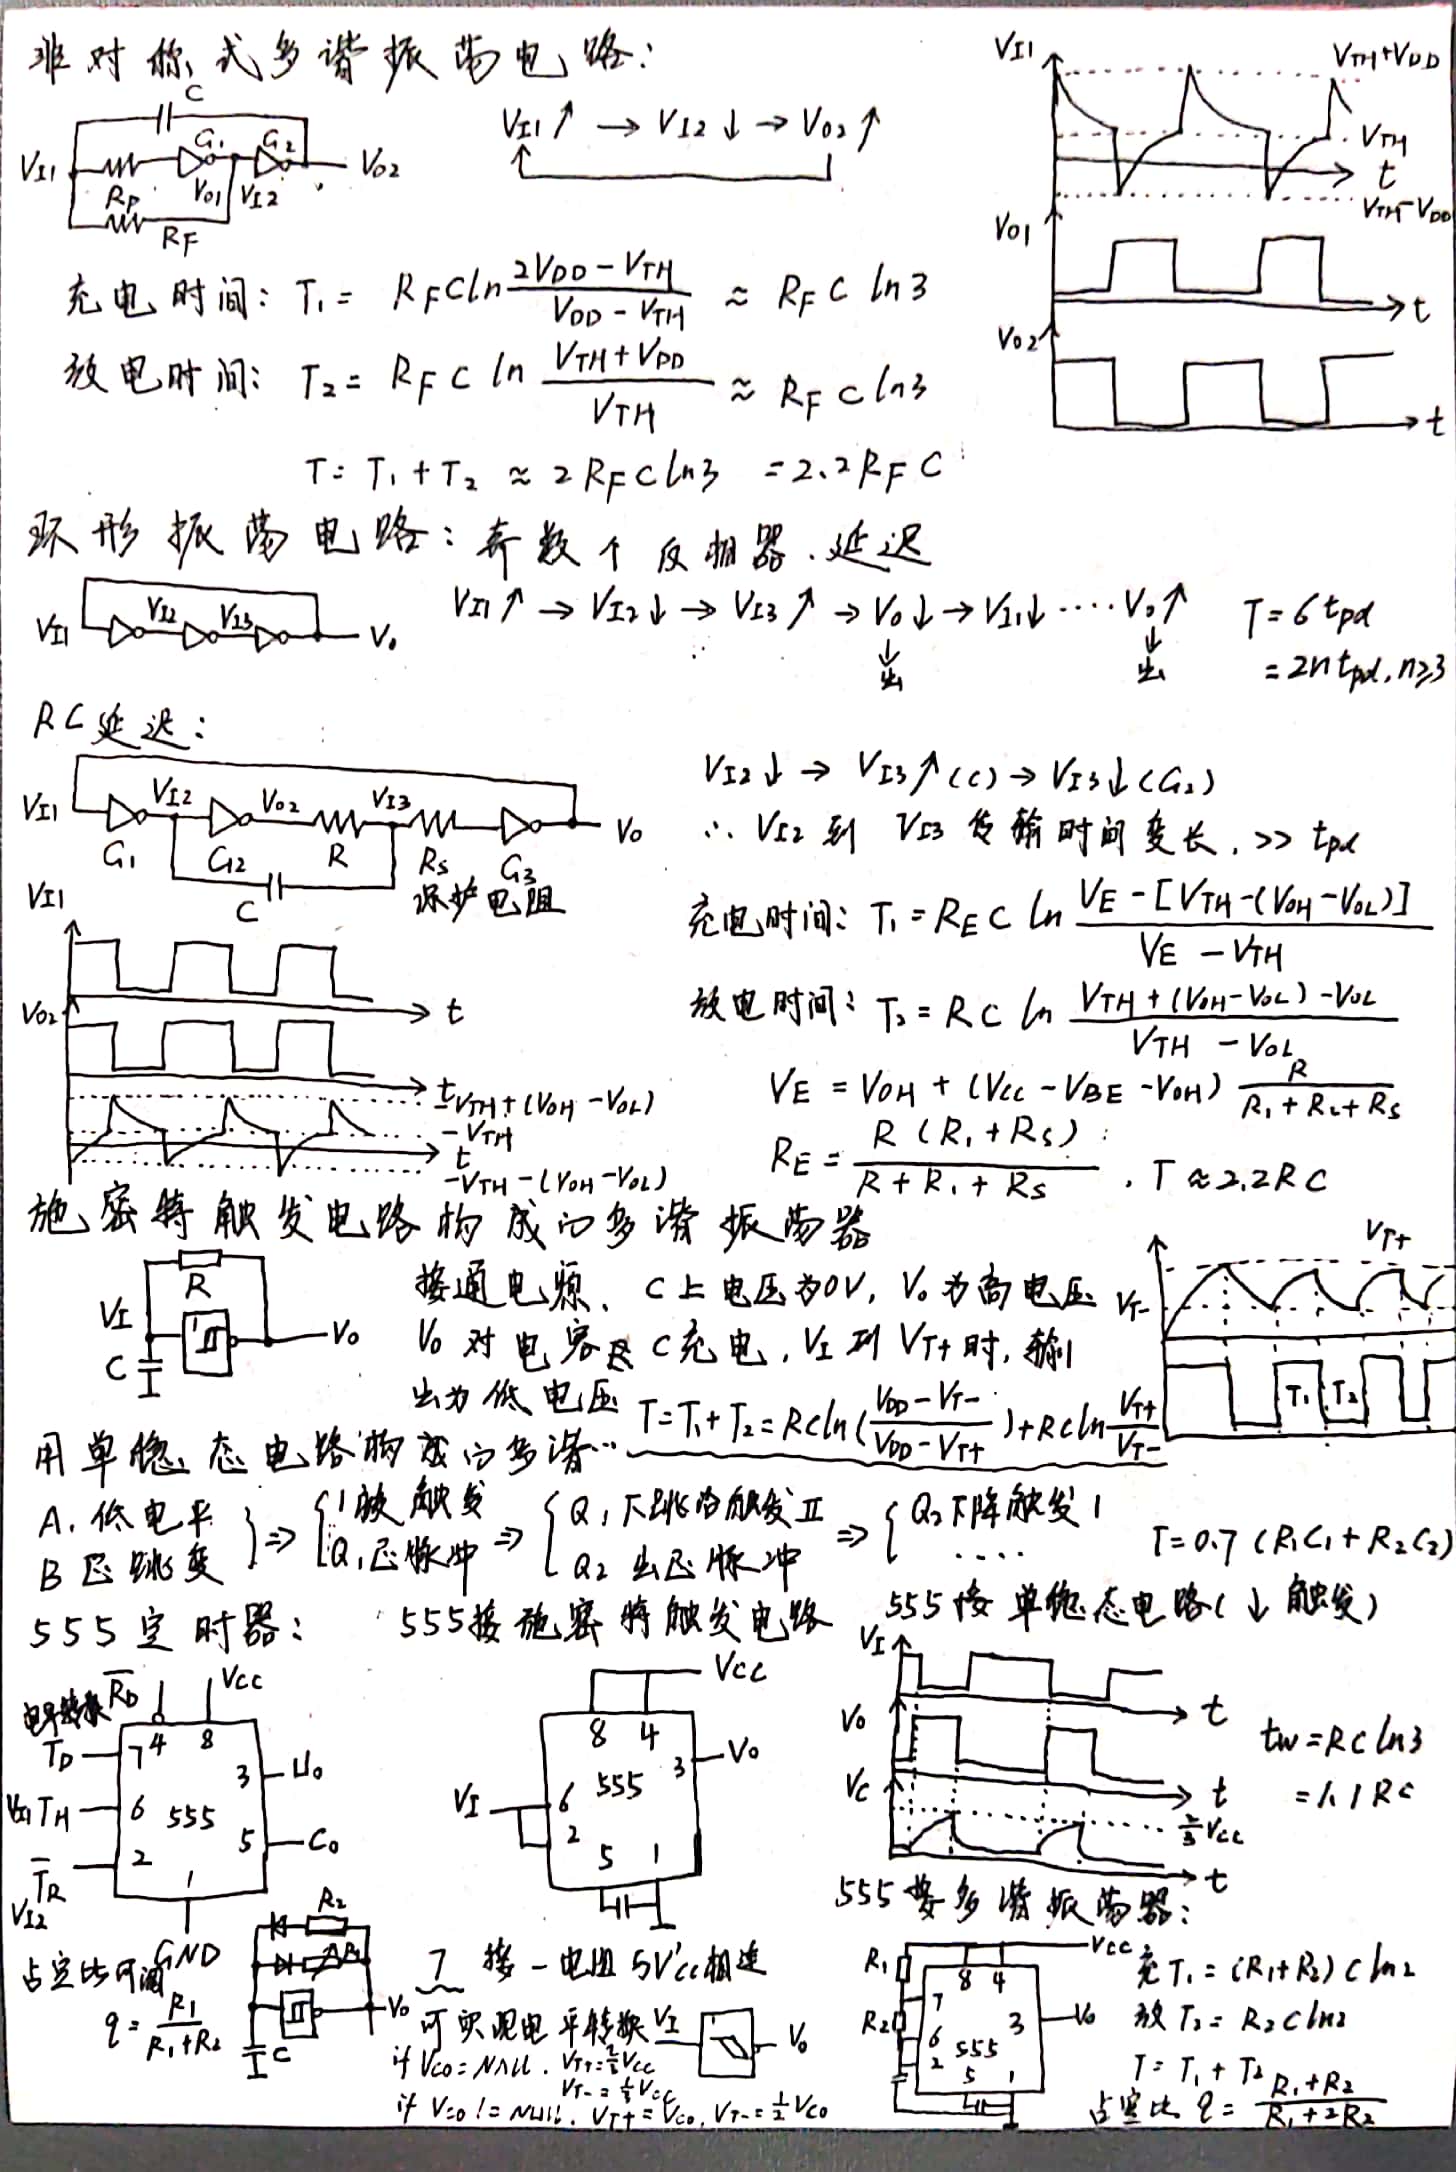 非对称式多谐振荡电路:
C
G₁ G₂
V_I1 R_P V_O1 V_I2 V_O2
R_F
V_I1↑ → V_I2↓ → V_O2↑
V_I1 V_TH+V_DD
V_TH
t
V_TH-V_DD
V_O1
t
V_O2
t
充电时间: T₁ = R_F C ln (2V_DD - V_TH)/(V_DD - V_TH) ≈ R_F C ln3
放电时间: T₂ = R_F C ln (V_TH + V_DD)/V_TH ≈ R_F C ln3
T = T₁ + T₂ ≈ 2R_F C ln3 = 2.2R_F C
环形振荡电路: 奇数个反相器、延迟
V_I1 V_I2 V_I3 V₀
V_I1↑ → V_I2↓ → V_I3↑ → V₀↓ → V_I1↓ ····· V₀↑
↓出 ↓出
T = 6t_pd
= 2n t_pd, n≥3
RC延迟:
V_I1 V_I2 V_O2 V_I3 V_O
G₁ G₂ R R_S G₃
C 保护电阻
V_I2↓ → V_I3↑(C) → V_I3↓(G₂)
∴ V_I2 到 V_I3 传输时间变长, >> t_pd
充电时间: T₁ = R_E C ln (V_E - [V_TH - (V_OH - V_OL)])/(V_E - V_TH)
放电时间: T₂ = RC ln (V_TH + (V_OH - V_OL) - V_OL)/(V_TH - V_OL)
V_E = V_OH + (V_CC - V_BE - V_OH) R/(R₁ + R₂ + R_S)
R_E = R(R₁ + R_S)/(R + R₁ + R_S), T ≈ 2.2RC
V_I1
t
V_O2
t
-V_TH + (V_OH - V_OL)
-V_TH
t
-V_TH - (V_OH - V_OL)
施密特触发电路构成的多谐振荡器
R
V_I V₀
C
接通电源、C上电压为0V, V₀为高电压
V₀ 对电容 C充电, V_I 到 V_T+ 时, 输
出为低电压
T = T₁ + T₂ = RC ln((V_DD - V_T-)/(V_DD - V_T+)) + RC ln V_T+/V_T-
V_T+
V_T-
T₁ T₂
用单稳态电路构成的多谐···
A. 低电平
B 正跳变
⇒ { 1被触发
Q₁正脉冲
⇒ { Q₁下跳沿触发Ⅱ
Q₂出正脉冲
⇒ { Q₂下降触发1
····
T = 0.7(R₁C₁ + R₂C₂)
555定时器:
电平转换 R̅_D V_CC
T_D 7 4 8
3 U₀
V_I1 T_H 6 555
5 C₀
T̅_R 2
V_I2 1
GND
占空比可调
q = R₁/(R₁+R₂)
R₂
R₁
V₀
C
555接施密特触发电路
V_CC
8 4
3 V₀
V_I 6 555
2
5 1
7 接一电阻与V'cc相连
可实现电平转换 V_I V₀
if V_CO = NULL. V_T+ = 2/3 V_CC
V_T- = 1/3 V_CC
if V_CO != NULL. V_T+ = V_CO, V_T- = 1/2 V_CO
555接单稳态电路(↓触发)
V_I
t
V₀
t
V_C
2/3 V_CC
t
t_w = RC ln3
= 1.1RC
555 多谐振荡器:
V_CC
R₁ 8 4
7
R₂ 3 V₀
6 555
2 5 1
充 T₁ = (R₁+R₂) C ln2
放 T₂ = R₂ C ln2
T = T₁ + T₂
占空比 q = (R₁+R₂)/(R₁+2R₂)